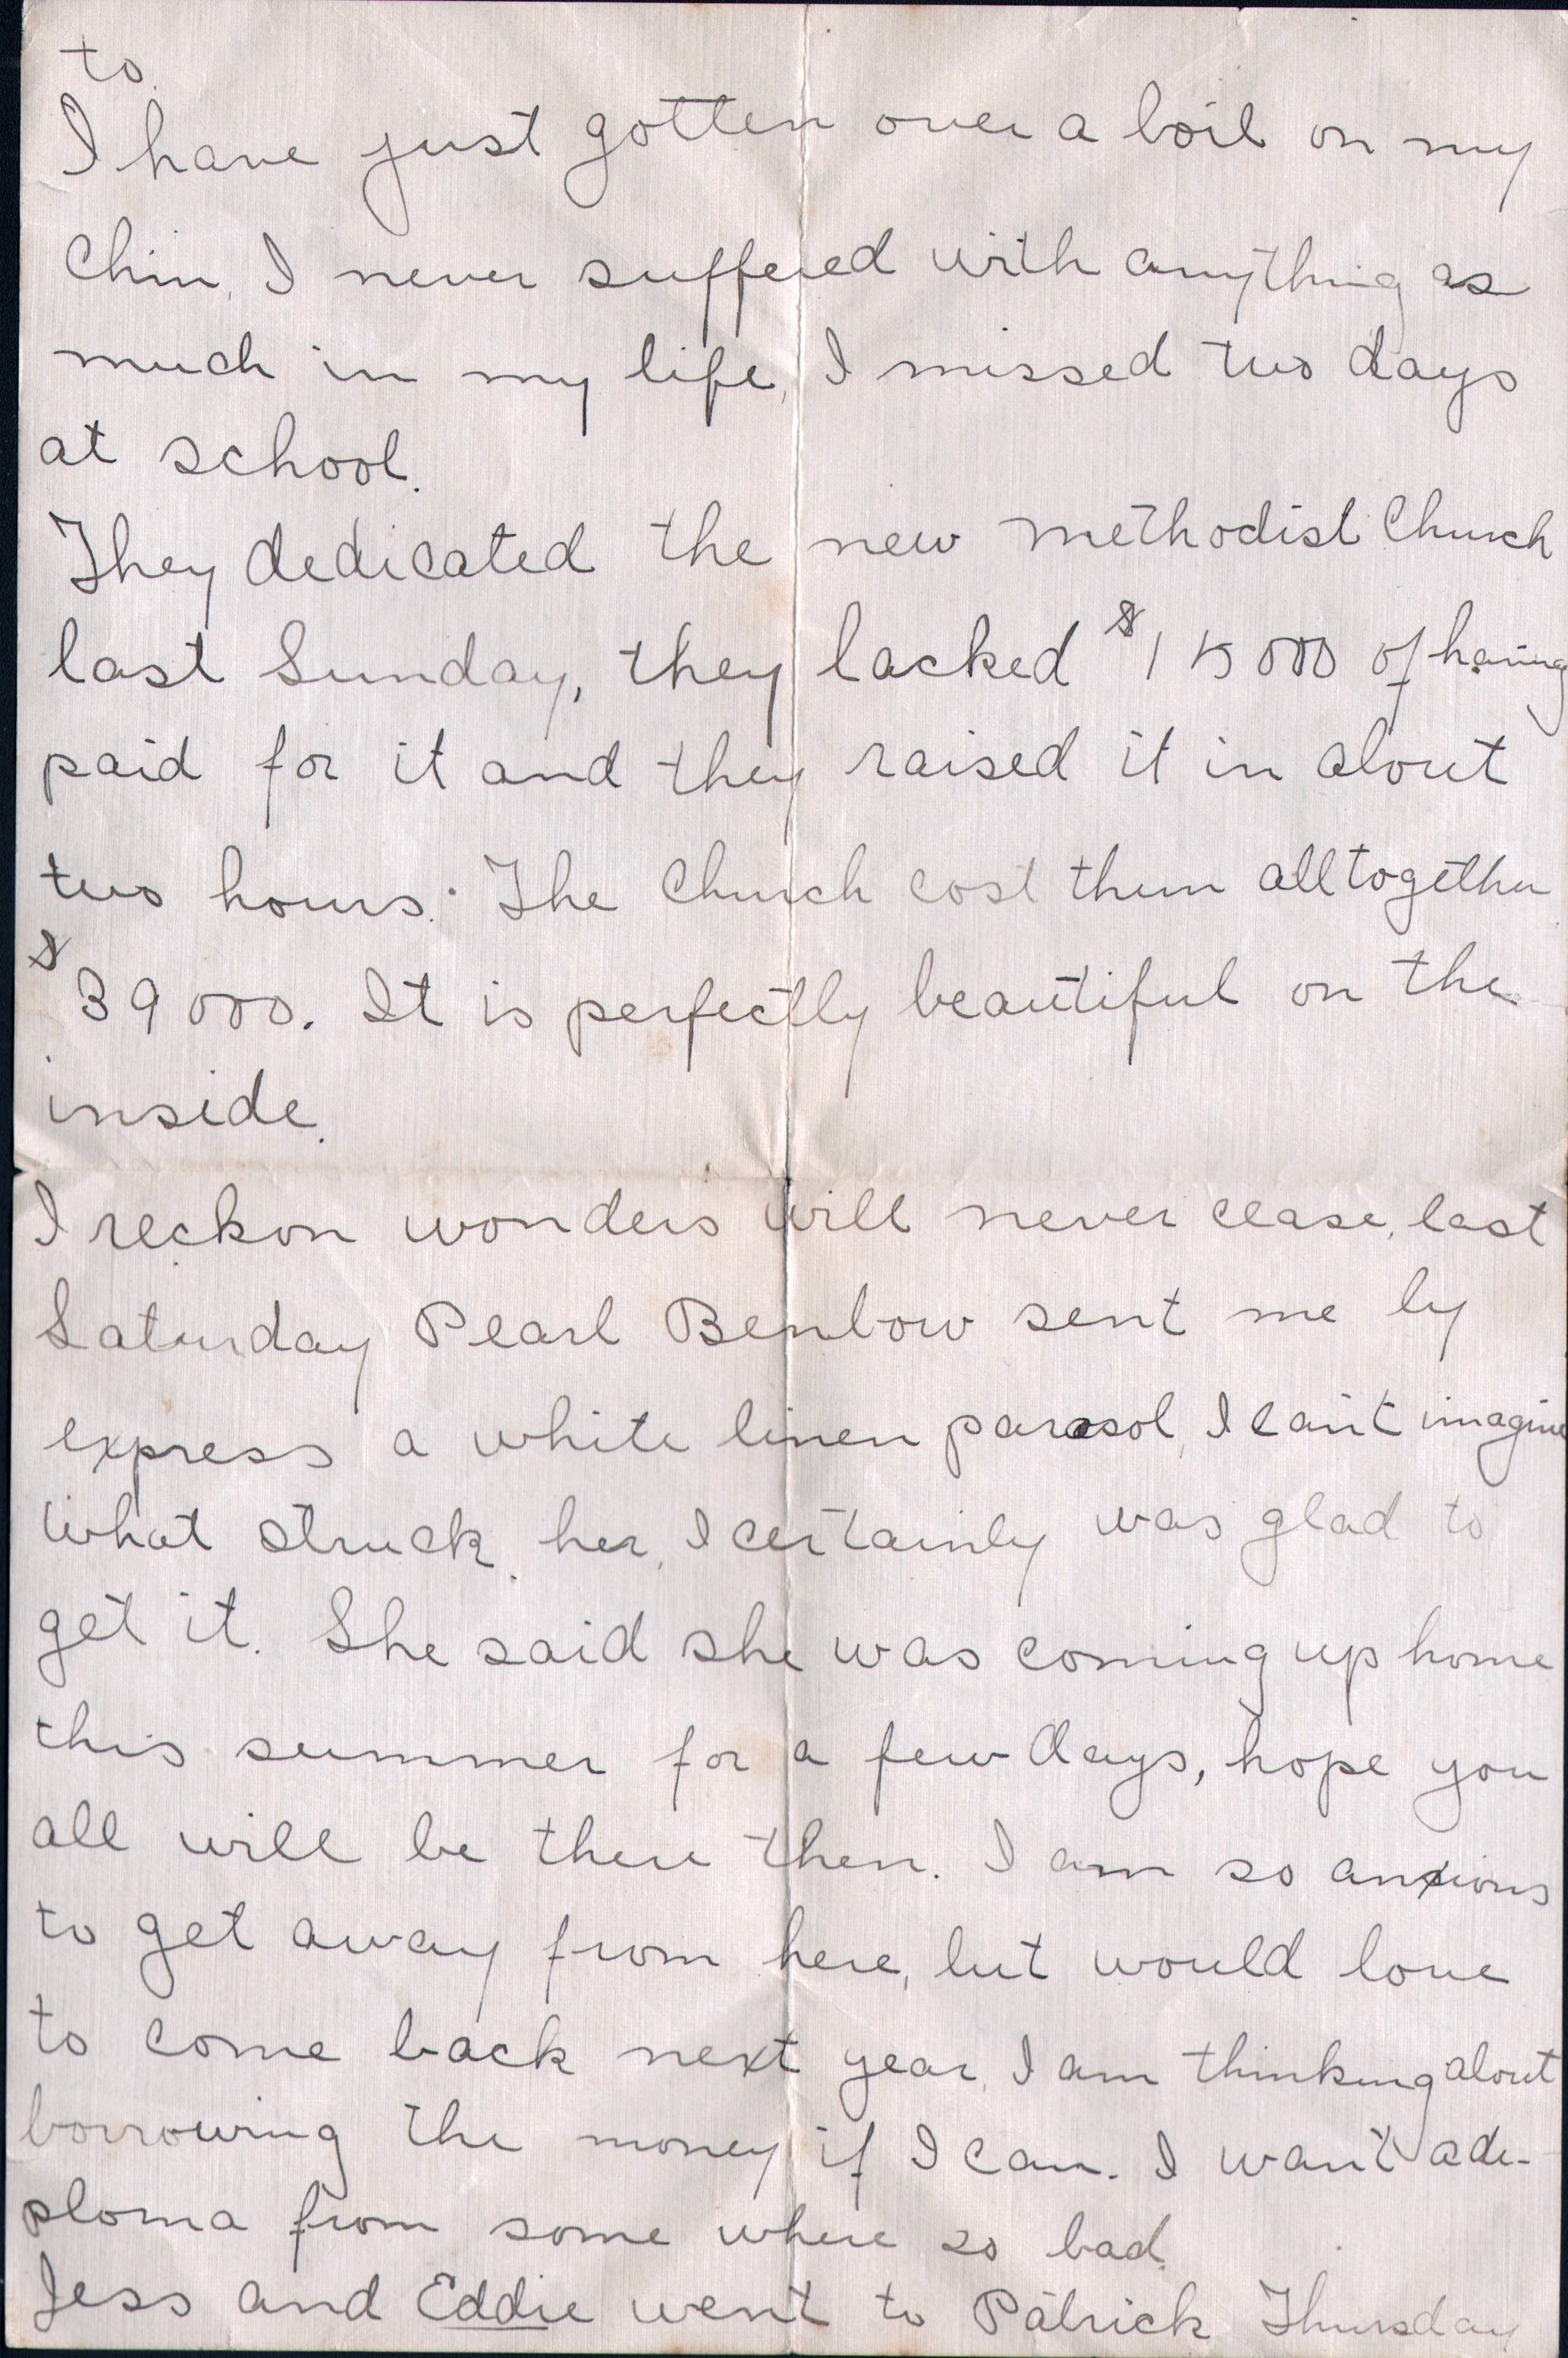 to
I have just gotten over a boil on my
Chin, I never suffered with anything as
much in my life, I missed two days
at school.
They dedicated the new methodist Church
last Sunday, they lacked $15000 of having
paid for it and they raised it in about
two hours. The Church cost them alltogether
$39000. It is perfectly beautiful on the
inside.
I reckon wonders will never cease, last
Saturday Pearl Benbow sent me by
express a white linen parasol, I can't imagine
what struck her, I certainly was glad to
get it. She said she was coming up home
this summer for a few days, hope you
all will be there then. I am so anxious
to get away from here, but would love
to come back next year, I am thinking about
borrowing the money if I can. I want a di-
ploma from some where so bad.
Jess and Eddie went to Patrick Thursday